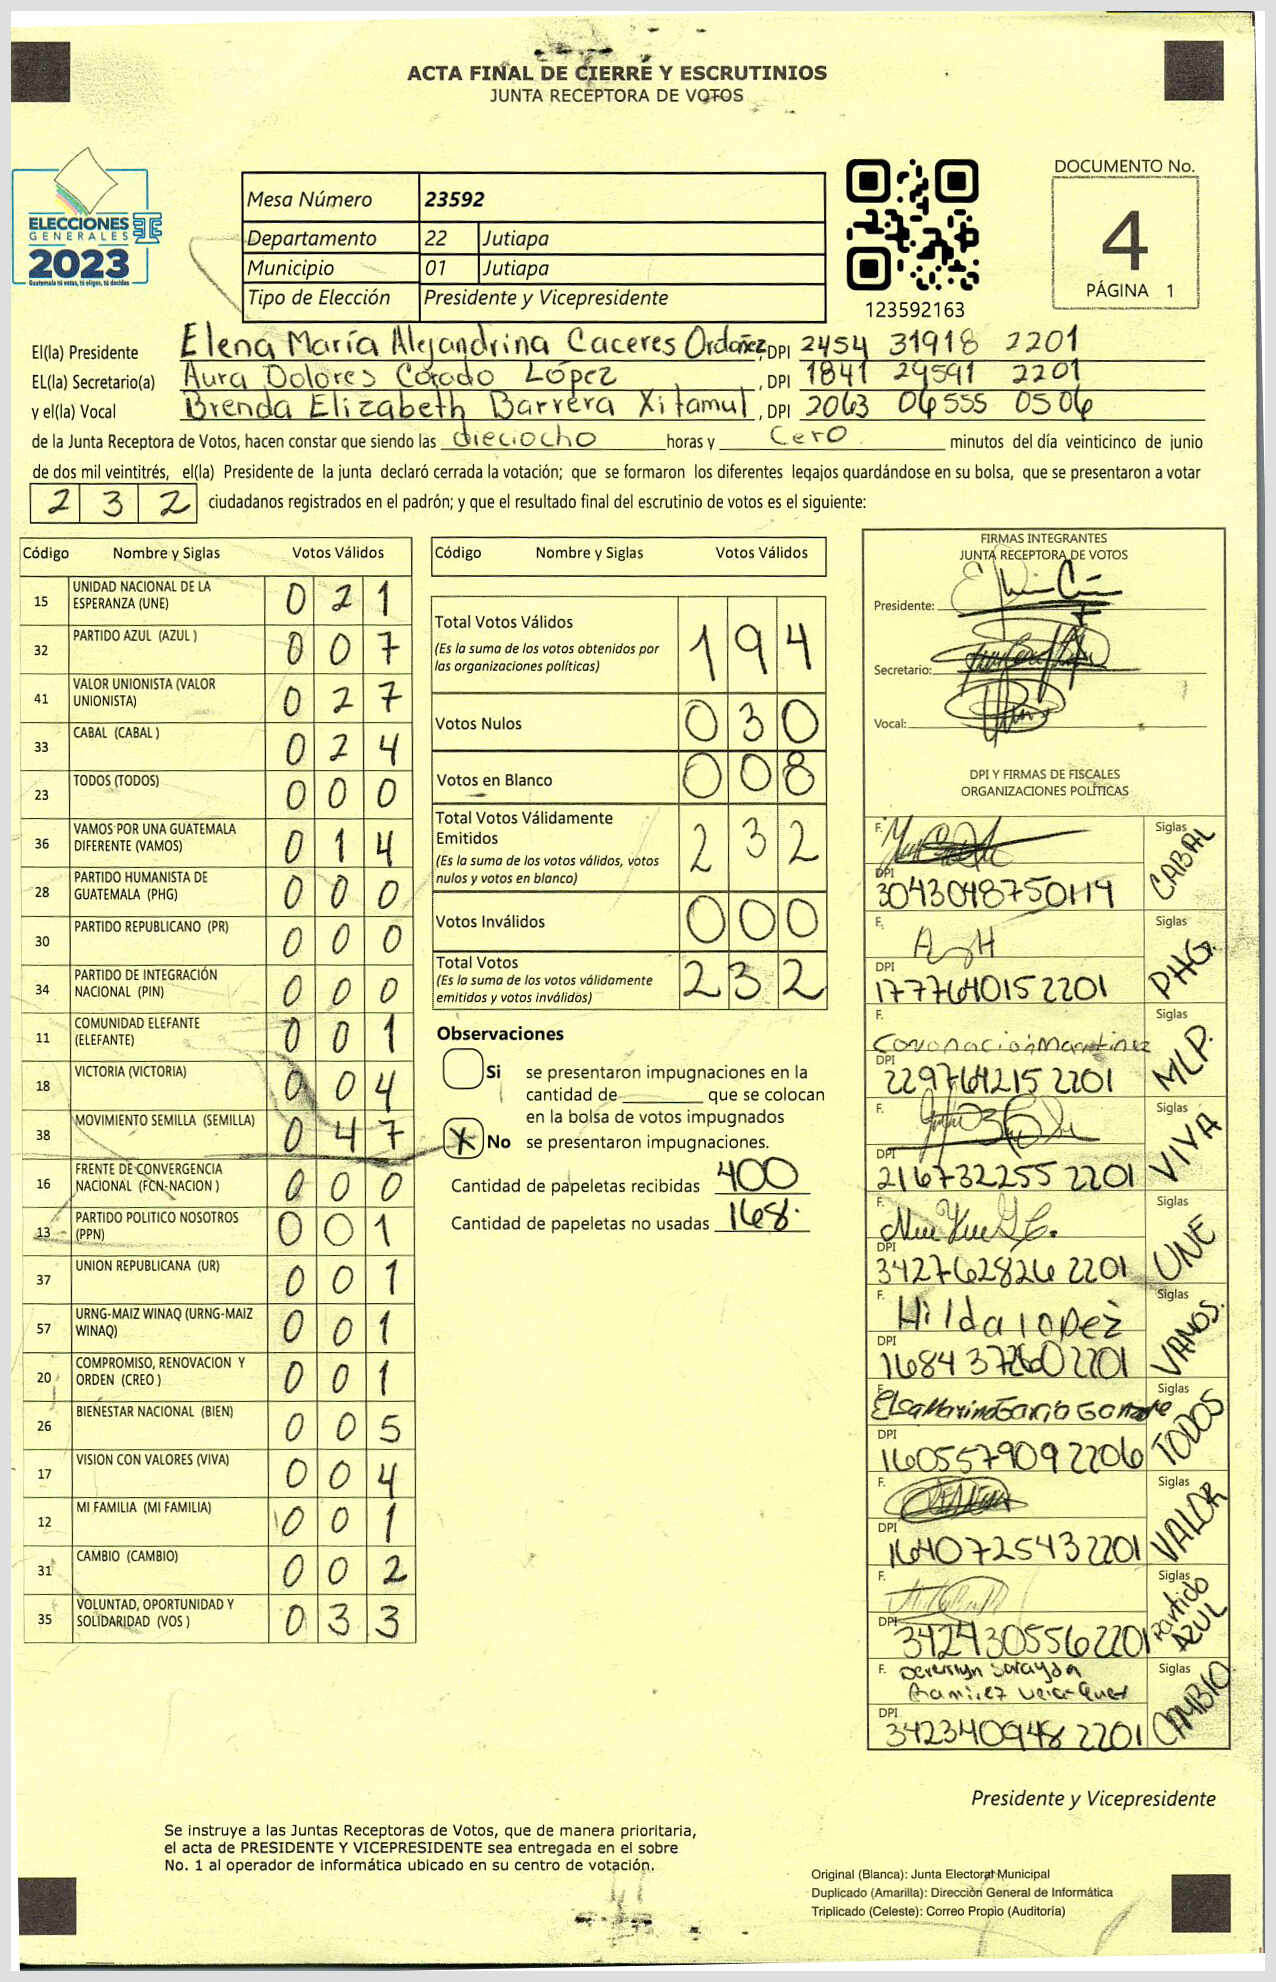 ACTA FINAL DE CIERRE Y ESCRUTINIOS
JUNTA RECEPTORA DE VOTOS
ELECCIONES
GENERALES
2023
Guatemala tú votas, tú eliges, tú decides
Mesa Número 23592
Departamento 22 Jutiapa
Municipio 01 Jutiapa
Tipo de Elección Presidente y Vicepresidente
123592163
DOCUMENTO No.
4
PÁGINA 1
El(la) Presidente Elena María Alejandrina Caceres Ordoñez, DPI 2454 31918 2201
EL(la) Secretario(a) Aura Dolores Corado López, DPI 1841 29591 2201
y el(la) Vocal Brenda Elizabeth Barrera Xitamul, DPI 2063 06555 0506
de la Junta Receptora de Votos, hacen constar que siendo las dieciocho horas y cero minutos del día veinticinco de junio
de dos mil veintitrés, el(la) Presidente de la junta declaró cerrada la votación; que se formaron los diferentes legajos quardándose en su bolsa, que se presentaron a votar
232 ciudadanos registrados en el padrón; y que el resultado final del escrutinio de votos es el siguiente:
Código Nombre y Siglas Votos Válidos
15 UNIDAD NACIONAL DE LA ESPERANZA (UNE) 021
32 PARTIDO AZUL (AZUL ) 007
41 VALOR UNIONISTA (VALOR UNIONISTA) 027
33 CABAL (CABAL ) 024
23 TODOS (TODOS) 000
36 VAMOS POR UNA GUATEMALA DIFERENTE (VAMOS) 014
28 PARTIDO HUMANISTA DE GUATEMALA (PHG) 000
30 PARTIDO REPUBLICANO (PR) 000
34 PARTIDO DE INTEGRACIÓN NACIONAL (PIN) 000
11 COMUNIDAD ELEFANTE (ELEFANTE) 001
18 VICTORIA (VICTORIA) 004
38 MOVIMIENTO SEMILLA (SEMILLA) 047
16 FRENTE DE CONVERGENCIA NACIONAL (FCN-NACION ) 000
13 PARTIDO POLITICO NOSOTROS (PPN) 001
37 UNION REPUBLICANA (UR) 001
57 URNG-MAIZ WINAQ (URNG-MAIZ WINAQ) 001
20 COMPROMISO, RENOVACION Y ORDEN (CREO ) 001
26 BIENESTAR NACIONAL (BIEN) 005
17 VISION CON VALORES (VIVA) 004
12 MI FAMILIA (MI FAMILIA) 001
31 CAMBIO (CAMBIO) 002
35 VOLUNTAD, OPORTUNIDAD Y SOLIDARIDAD (VOS ) 033
Código Nombre y Siglas Votos Válidos
Total Votos Válidos 194
(Es la suma de los votos obtenidos por
las organizaciones políticas)
Votos Nulos 030
Votos en Blanco 008
Total Votos Válidamente
Emitidos 232
(Es la suma de los votos válidos, votos
nulos y votos en blanco)
Votos Inválidos 000
Total Votos 232
(Es la suma de los votos válidamente
emitidos y votos inválidos)
Observaciones
Si se presentaron impugnaciones en la
cantidad de que se colocan
en la bolsa de votos impugnados
X No se presentaron impugnaciones.
Cantidad de papeletas recibidas 400
Cantidad de papeletas no usadas 168.
FIRMAS INTEGRANTES
JUNTA RECEPTORA DE VOTOS
Presidente:
Secretario:
Vocal:
DPI Y FIRMAS DE FISCALES
ORGANIZACIONES POLÍTICAS
F. Siglas CABAL
DPI 3043048750114
F. Siglas PHG.
DPI 1777640152201
F. Coronación Martinez Siglas MLP.
DPI 2297642152201
F. Siglas VIVA
DPI 2167322552201
F. Siglas UNE
DPI 3427628262201
F. Hilda lopez Siglas VAMOS.
DPI 1684372602201
F. Siglas TODOS
DPI 1605579092206
F. Siglas VALOR
DPI 1640725432201
F. Siglas Partido AZUL
DPI 3424305562201
F. Siglas CAMBIO
Ramirez
DPI 3423409482201
Presidente y Vicepresidente
Se instruye a las Juntas Receptoras de Votos, que de manera prioritaria,
el acta de PRESIDENTE Y VICEPRESIDENTE sea entregada en el sobre
No. 1 al operador de informática ubicado en su centro de votación.
Original (Blanca): Junta Electoral Municipal
Duplicado (Amarilla): Dirección General de Informática
Triplicado (Celeste): Correo Propio (Auditoría)